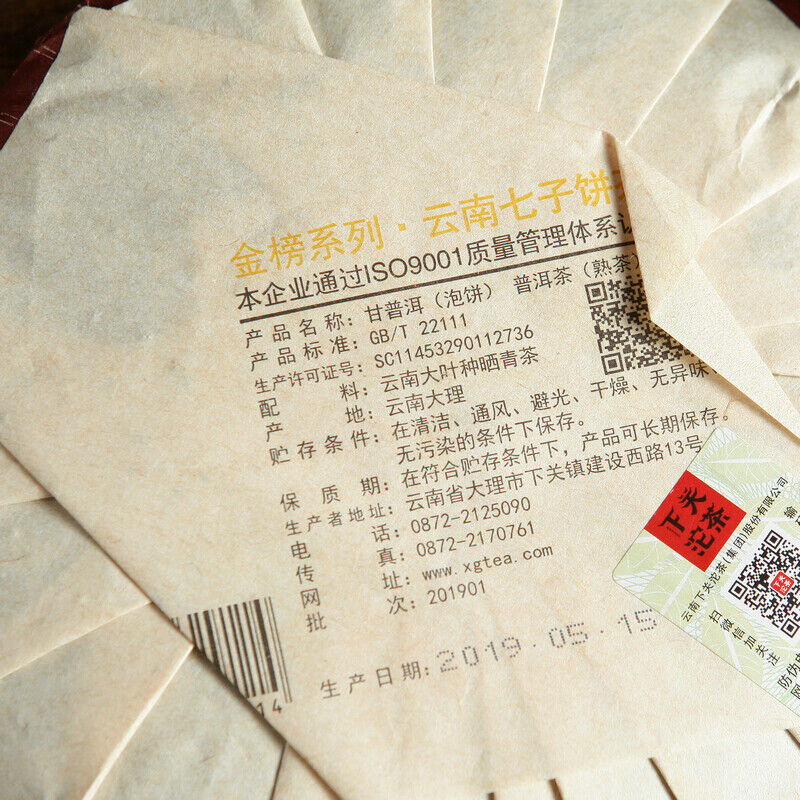 金榜系列·云南七子饼
本企业通过ISO9001质量管理体系
产品名称：甘普洱（泡饼） 普洱茶（熟茶）
产品标准：GB/T 22111
生产许可证号：SC11453290112736
配料：云南大叶种晒青茶
产地：云南大理
贮存条件：在清洁、通风、避光、干燥、无异味、
无污染的条件下保存。
保质期：在符合贮存条件下，产品可长期保存。
生产者地址：云南省大理市下关镇建设西路13号
电话：0872-2125090
传真：0872-2170761
网址：www.xgtea.com
批次：201901
生产日期：2019.05.15
14
下关
沱茶
云南下关沱茶(集团)股份有限公司
扫微信加关注
防伪
网